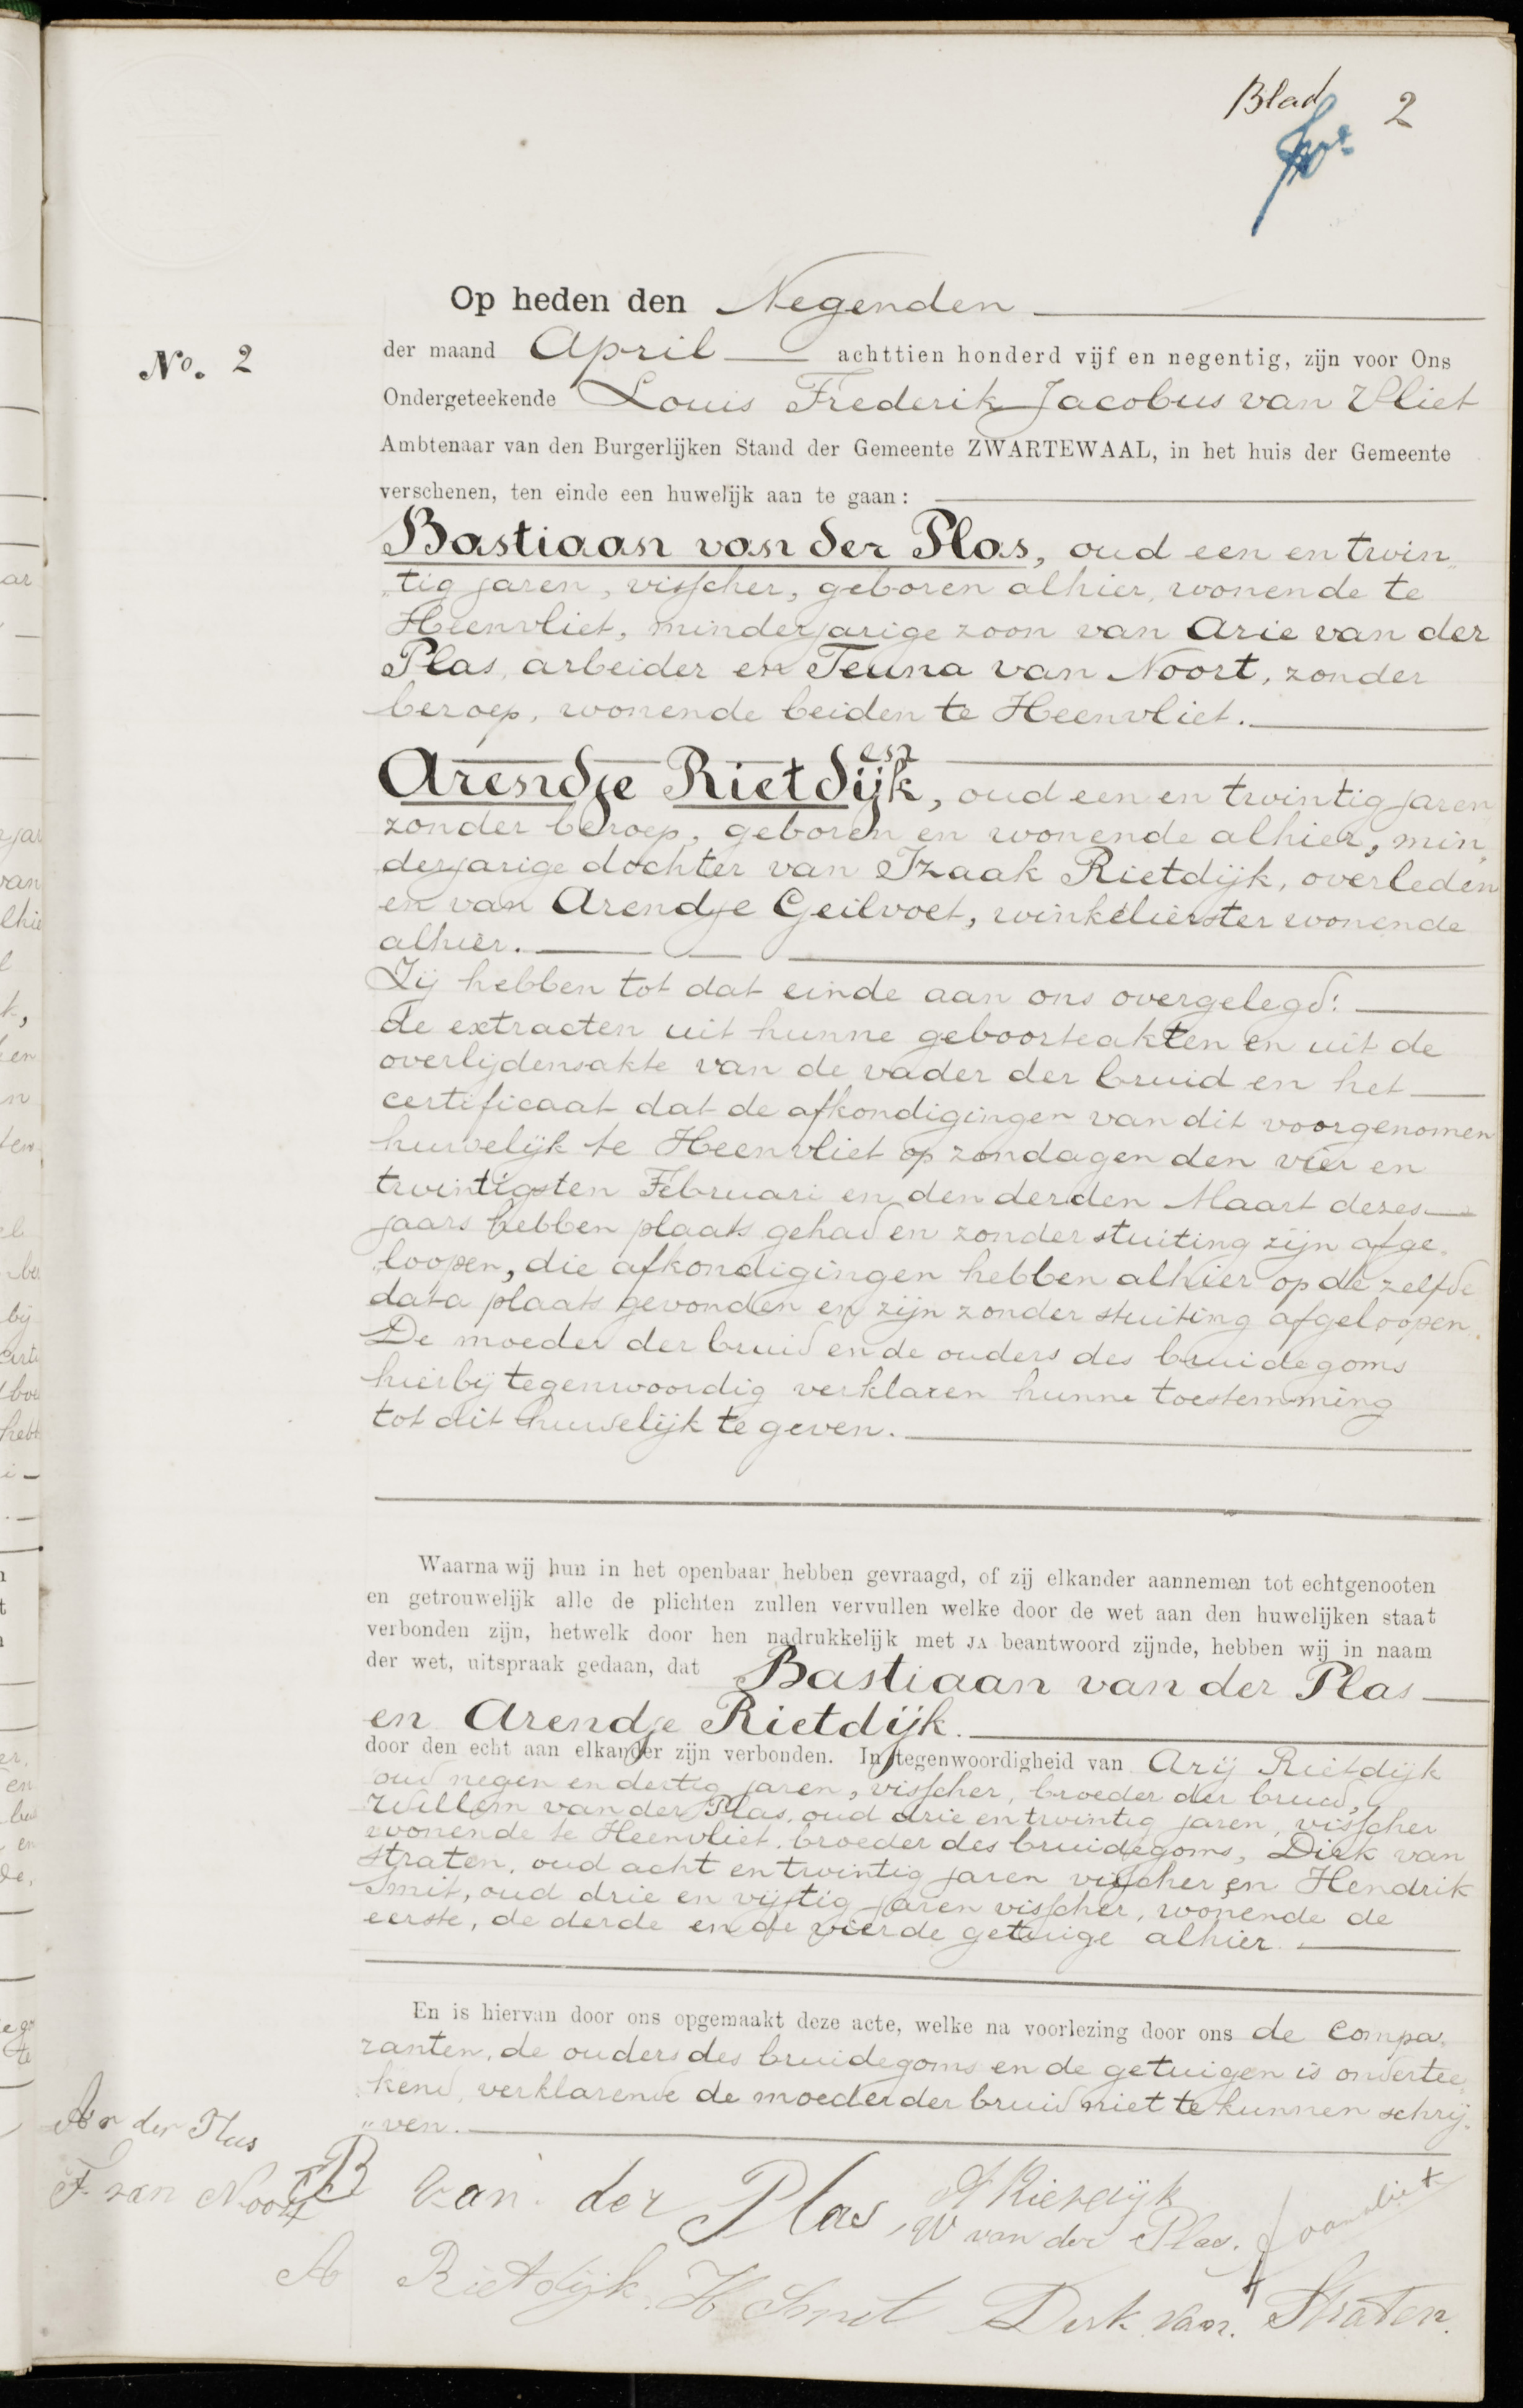 Blad 2
Op heden den Negenden
No. 2
der maand April achttien honderd vijf en negentig, zijn voor Ons
Ondergeteekende Louis Frederik Jacobus van Vliet
Ambtenaar van den Burgerlijken Stand der Gemeente ZWARTEWAAL, in het huis der Gemeente
verschenen, ten einde een huwelijk aan te gaan:
Bastiaan van der Plas, oud een en twin„
„tig jaren, visscher, geboren alhier, wonende te
Heenvliet, minderjarige zoon van Arie van der
Plas, arbeider en Teuna van Noort, zonder
beroep, wonende beiden te Heenvliet.
en
Arendje Rietdijk, oud een en twintig jaren
zonder beroep, geboren en wonende alhier, min„
derjarige dochter van Izaak Rietdijk, overleden
en van Arendje Geilvoet, winkelierster wonende
alhier.
Zij hebben tot dat einde aan ons overgelegd:
de extracten uit hunne geboorteakten en uit de
overlijdensakte van de vader der bruid en het
certificaat dat de afkondigingen van dit voorgenomen
huwelijk te Heenvliet op zondagen den vier en
twintigsten Februari en den derden Maart dezes
jaars hebben plaats gehad en zonder stuiting zijn afge„
loopen, die afkondigingen hebben alhier op de zelfde
data plaats gevonden en zijn zonder stuiting afgeloopen.
De moeder der bruid en de ouders des bruidegoms
hierbij tegenwoordig verklaren hunne toestemming
tot dit huwelijk te geven.
Waarna wij hun in het openbaar hebben gevraagd, of zij elkander aannemen tot echtgenooten
en getrouwelijk alle de plichten zullen vervullen welke door de wet aan den huwelijken staat
verbonden zijn, hetwelk door hen nadrukkelijk met JA beantwoord zijnde, hebben wij in naam
der wet, uitspraak gedaan, dat Bastiaan van der Plas
en Arendje Rietdijk.
door den echt aan elkander zijn verbonden. In tegenwoordigheid van Arij Rietdijk
oud negen en dertig jaren, visscher, broeder der bruid,
Willem van der Plas, oud drie en twintig jaren, visscher
wonende te Heenvliet, broeder des bruidegoms, Dirk van
Straten, oud acht en twintig jaren visscher en Hendrik
Smit, oud drie en vijftig jaren visscher, wonende de
eerste, de derde en de vierde getuige alhier.
En is hiervan door ons opgemaakt deze acte, welke na voorlezing door ons de compa„
ranten, de ouders des bruidegoms en de getuigen is ondertee„
kend, verklarende de moeder der bruid niet te kunnen schrij„
„ven.
der Plas
T van Noort
B van der Plas A Rietdijk
W van der Plas. vanvliet
A Rietdijk. H Smit Dirk van Straten.